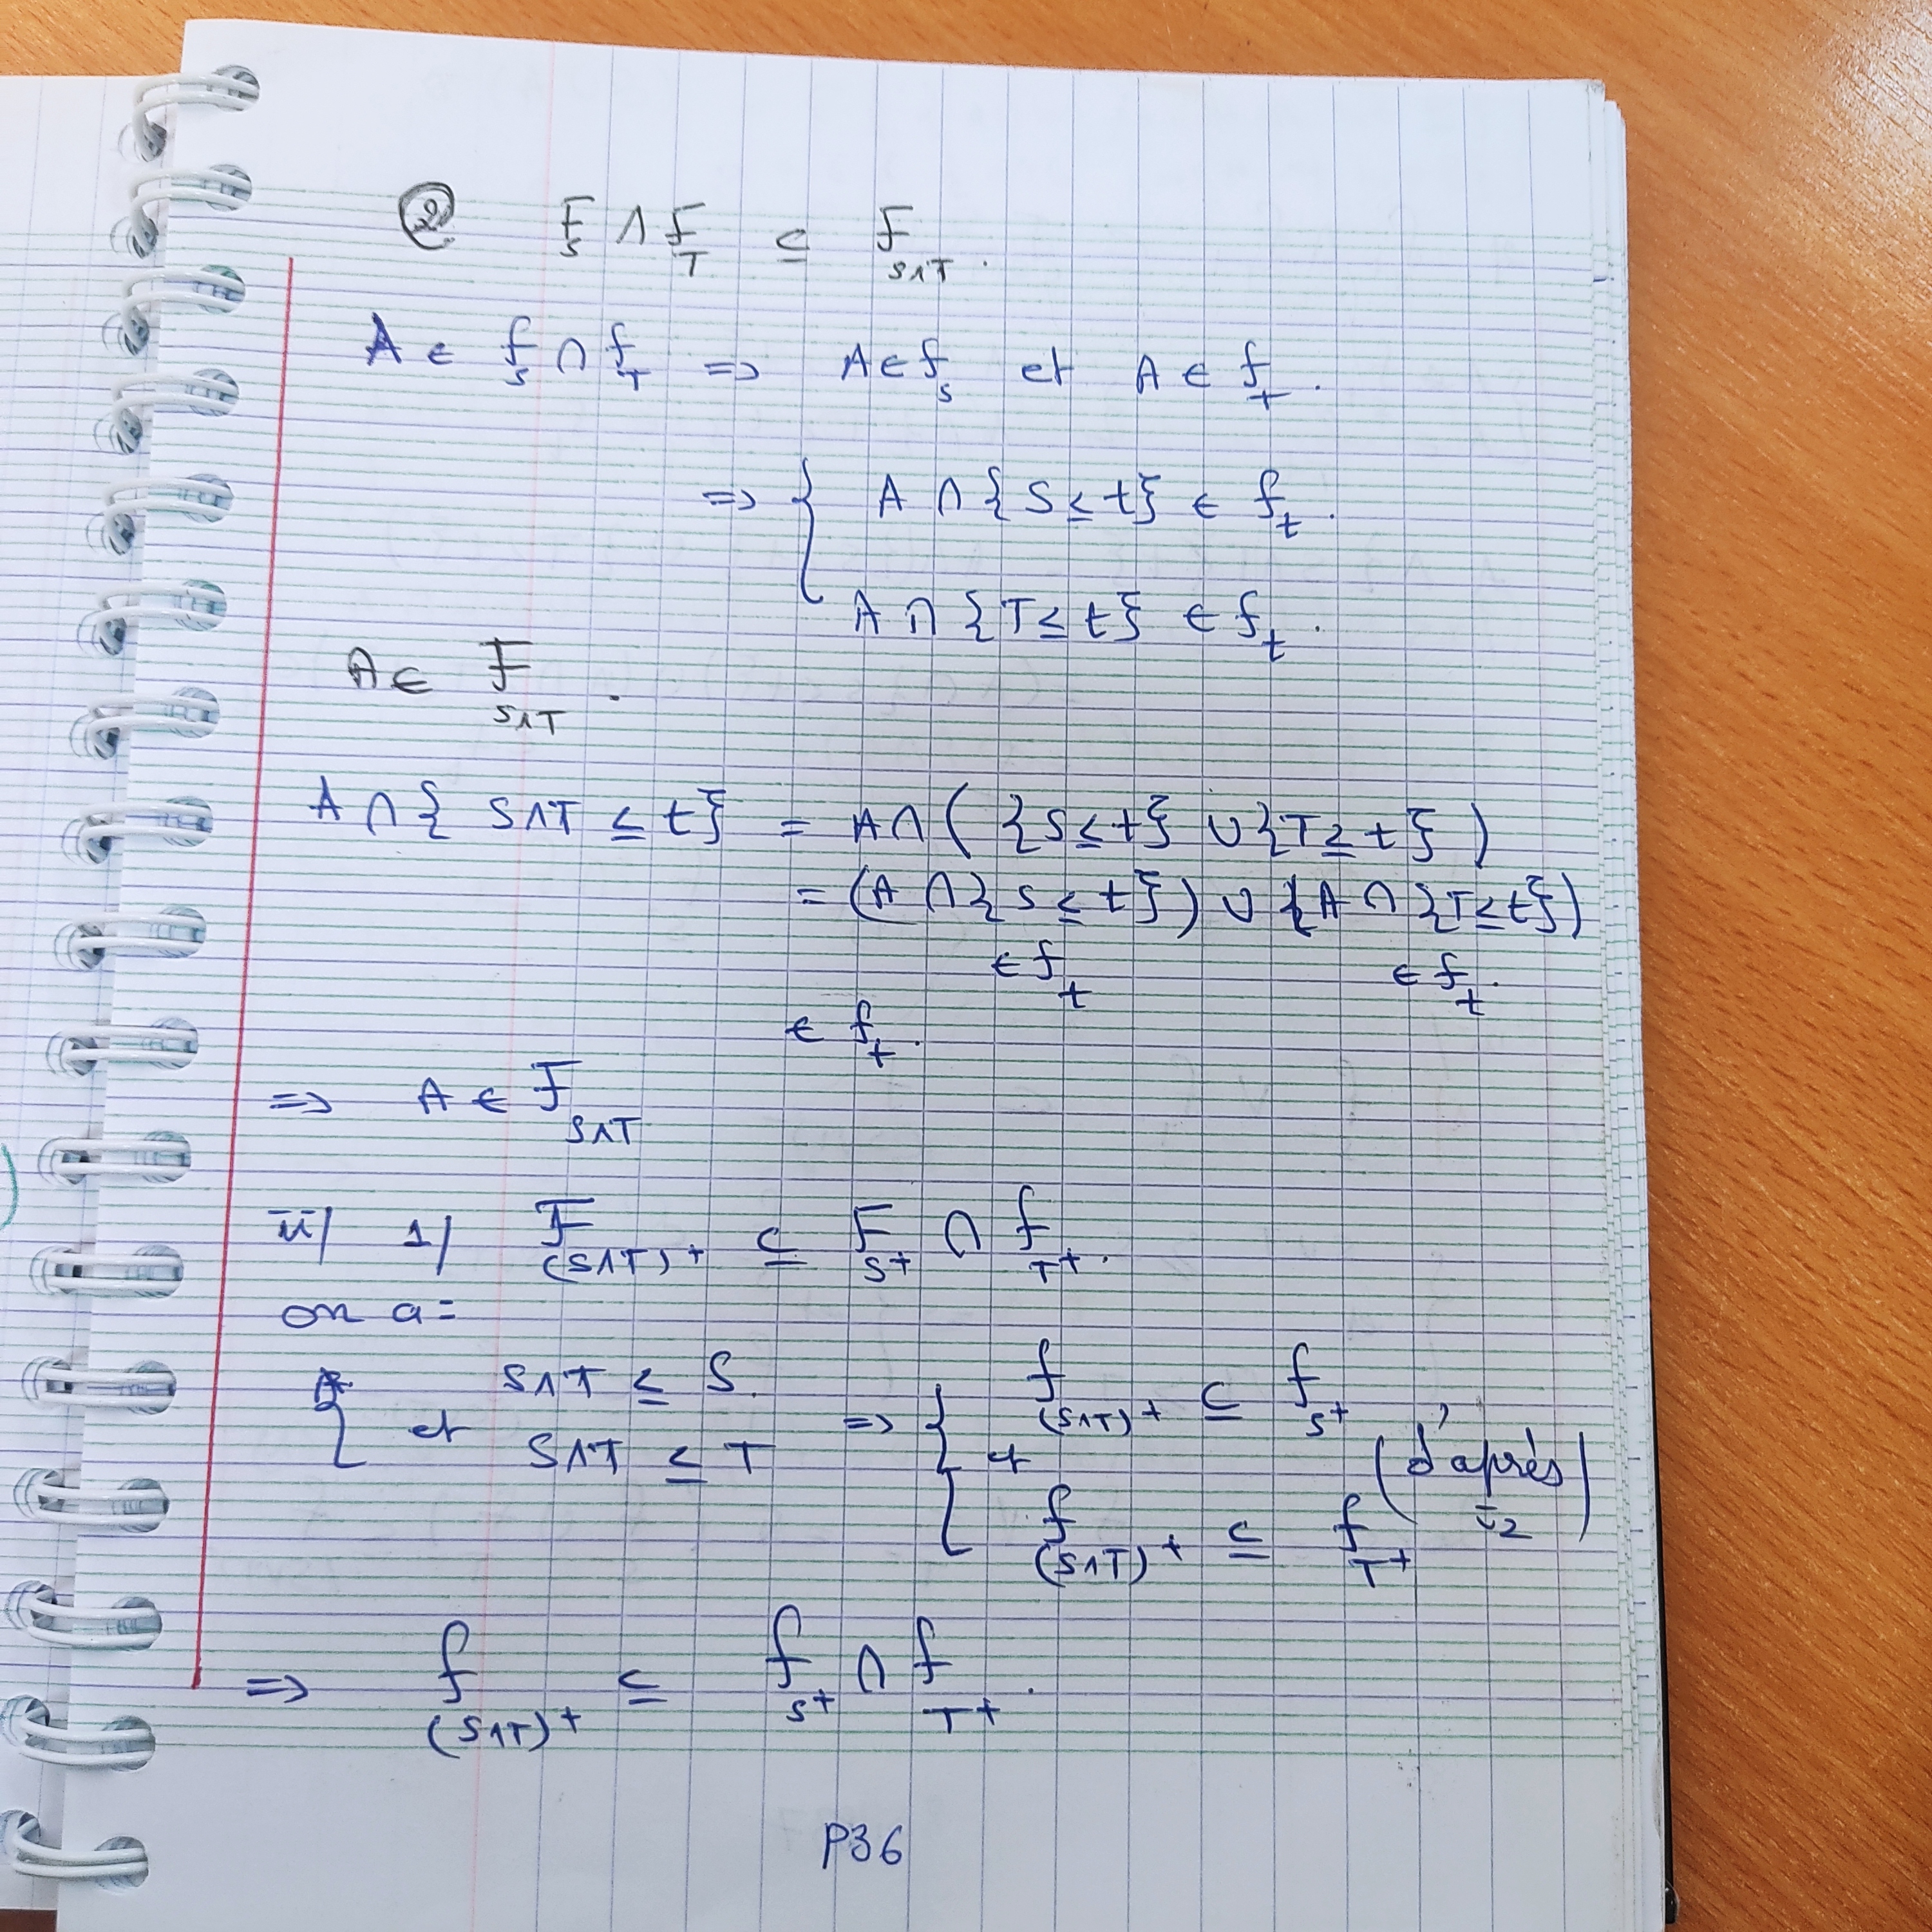 ② F_S ∧ F_T ⊆ F_{S∧T}.
A ∈ f_S ∩ f_T => A ∈ f_S et A ∈ f_T.
=> { A ∩ {S ≤ t} ∈ f_t.
A ∩ {T ≤ t} ∈ f_t.
A ∈ F_{S∧T}.
A ∩ { S∧T ≤ t} = A ∩ ( {S ≤ t} ∪ {T ≥ t} )
= (A ∩ {S ≤ t}) ∪ (A ∩ {T ≤ t})
∈ f_t ∈ f_t.
∈ f_t.
=> A ∈ F_{S∧T}
ii/ 1/ F_{(S∧T)^+} ⊆ F_{S^+} ∩ f_{T^+}.
on a =
{ S∧T ≤ S. => { f_{(S∧T)^+} ⊆ f_{S^+}
et S∧T ≤ T et f_{(S∧T)^+} ⊆ f_{T^+} (d'après i_2)
=> f_{(S∧T)^+} ⊆ f_{S^+} ∩ f_{T^+}.
P36